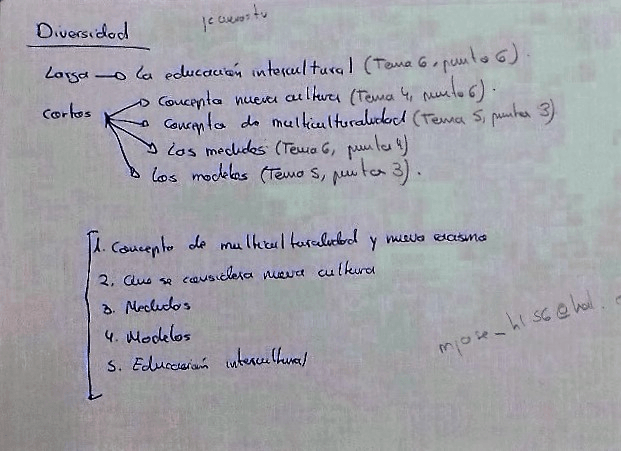 Diversidad
Larga → La educación intercultural (Tema 6, punto 6).
Cortas → Concepto nueva cultura (Tema 4, punto 6).
→ Concepto de multiculturalidad (Tema 5, punto 3)
→ Las medidas (Tema 6, punto 4)
→ Los modelos (Tema 5, punto 3).
1. Concepto de multiculturalidad y nuevo racismo
2. Que se considera nueva cultura
3. Medidas
4. Modelos
5. Educación intercultural